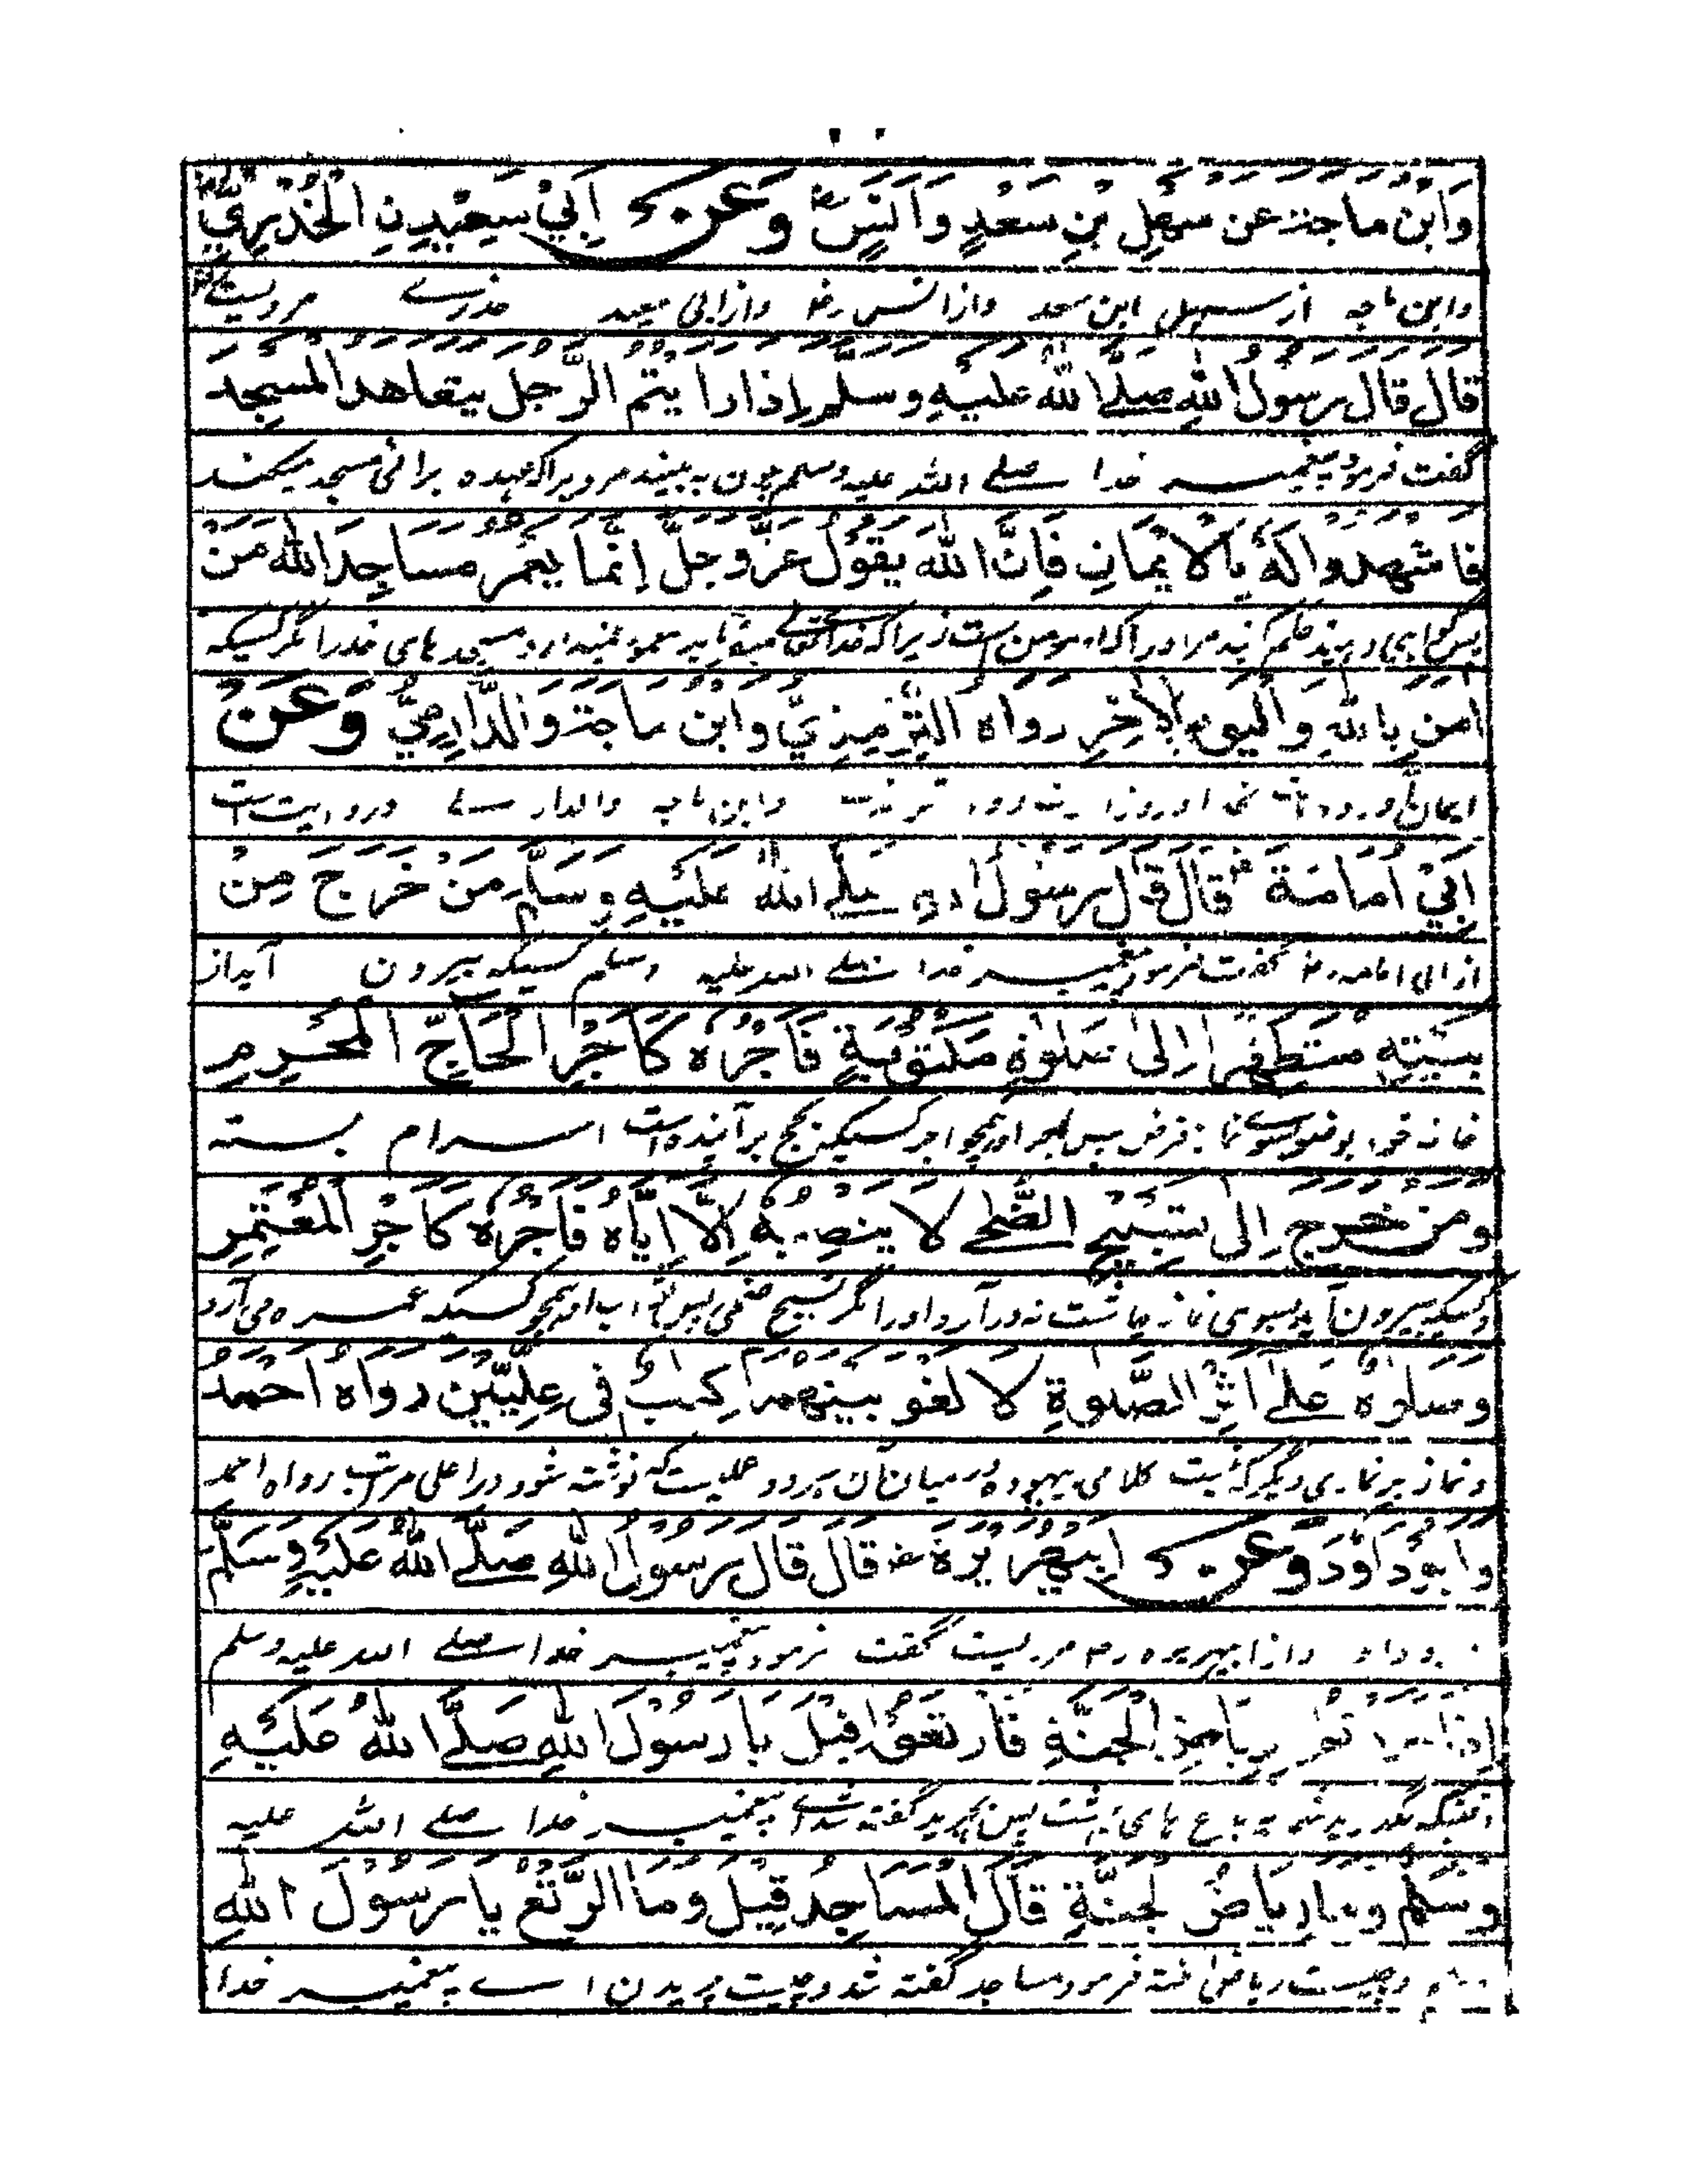 وَابْن ماجة عن سهلِ بْنِ سَعْدٍ وَاَنَسٍ رض وَعَنْ اَبِيْ سَعِيْدِنِ الْخُدْرِيِّ
وابن ماجه از سهیل ابن سعد وازانس رض وازابی سعید خدرے مرویست
قال قال رسُوْلُ اللهِ صلے اللهُ عليهِ وسلم إذا رايتم الرَّجل يتعاهد المسجِدَ
گفت فرمود پیغمبر خدا صلے الله علیه وسلم چون به بینید مردیرا که عهده برائی مسجد میکند
فَاشهدوا لَهٗ بِالْاِيْمَانِ فَاِنَّ اللهَ يَقُوْلُ عَزَّ وجلَّ اِنَّما يعمُر مسَاجِدَ الله مَنْ
زیراکه مسجد های خدرا مگر کسیکه
اٰمن بِاللهِ وَاليومِ الْاٰخِرِ رواه التِّرْمِذِيُّ وابْن ماجة وَالدَّارِمِيُّ وَعَنْ
وابن ماجه والدارمے وروایت است
اَبِيْ اُمَامَةَ رض قَالَ قَالَ رسُوْلُ الله صلے اللهُ عَلَيْهِ وسَلَّم مَنْ خَرَجَ مِنْ
از ابی امامه رض گفت فرمود پیغمبر خدا صلے الله علیه وسلم کسیکه بیرون آید از
بَيْتِهٖ متَطَهِّرًا اِلٰى صَلٰوةٍ مَكْتُوْبَةٍ فَاَجْرُهٗ كَاَجْرِ الْحَاجِّ الْمُحْرِمِ
خانه خود بوضو سوے نماز فرض پس اجر او همچو اجر کسیکه بحج برآینده است احرام بسته
ومن خرج اِلٰى تسْبِيْحِ الضُّحٰے لا ينصِبُهٗ اِلَّا اِيَّاهُ فَاَجْرُهٗ كَاَجْرِ الْمُعْتَمِرِ
وکسیکه بیرون آید بسوی نماز چاشت نه درآرد اورا مگر تسبیح همچو کسیکه عمره می آرد
وصلٰوة عَلٰے اثْرِ الصَّلٰوةِ لا لغو بينهما كتٰبٌ فى عِلِّيِّيْن رواه احمدُ
ونماز بر نمازی دیگر که نیست کلامی بیهوده درمیان آن هردو عملیست که نوشته شود در اعلی مراتب رواه احمد
وابُوْدَاوٗدَ وعَنْ اَبِيْهُرَيْرَةَ رض قالَ قال رسُوْلُ اللهِ صلَّے اللهُ عَلَيْهِ وَسَلَّمَ
وازابیهریره رض مرویست گفت فرمود پیغمبر خدا صلے الله علیه وسلم
اِذا بِرِيَاضِ الْجَنَّةِ فَارتعُوْا قِيْلَ يَا رسُوْلَ اللهِ صلَّے اللهُ عَلَيْهِ
بهشت پس بچرید گفته شد اے پیغمبر خدا صلے الله علیه
وسَلَّم وما رِيَاضُ الجنَّةِ قَالَ الْمَسَاجِدُ قِيْلَ ومَا الرَّتْعُ يا رسُوْلَ اللهِ
وچیست ریاض فرمود مساجد گفته شد وچیست چریدن اے پیغمبر خدا